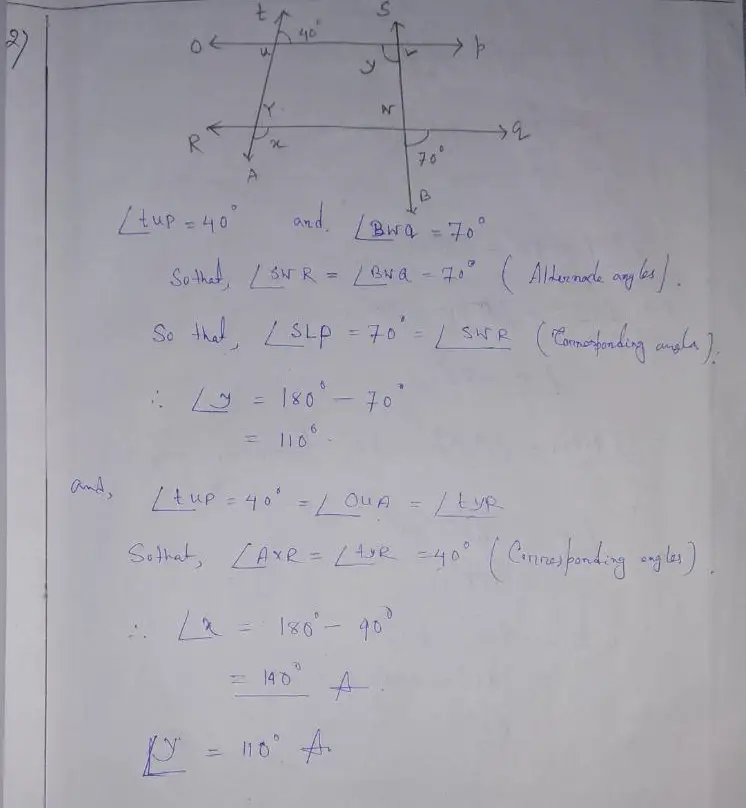 2)
t S
O 40° P
u y v
R Y x N 70° Q
A B
∠tUP = 40° and. ∠BWQ = 70°
So that, ∠SWR = ∠BWQ = 70° (Alternade angles).
So that, ∠SLP = 70° = ∠SWR (Corresponding angles).
∴ ∠y = 180° - 70°
= 110°.
and, ∠tUP = 40° = ∠OUA = ∠tYR
So that, ∠AxR = ∠tYR = 40° (Corresponding angles).
∴ ∠x = 180° - 40°
= 140° A.
∠y = 110° A.